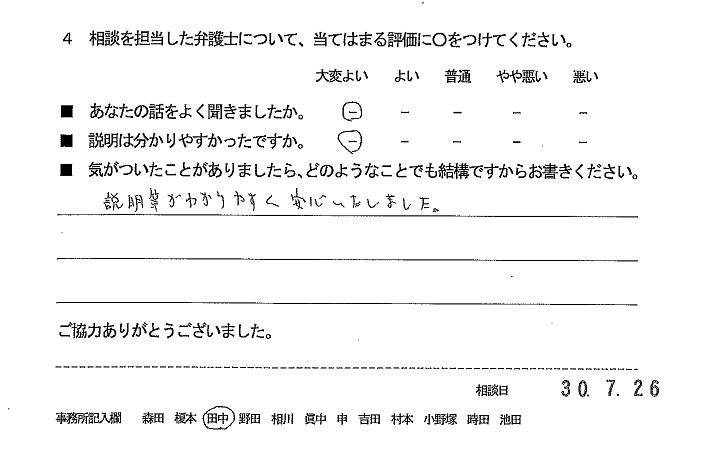 4 相談を担当した弁護士について、当てはまる評価に〇をつけてください。
大変よい よい 普通 やや悪い 悪い
■ あなたの話をよく聞きましたか。 － － － － －
■ 説明は分かりやすかったですか。 － － － － －
■ 気がついたことがありましたら、どのようなことでも結構ですからお書きください。
説明等がわかりやすく安心いたしました。
ご協力ありがとうございました。
相談日 30. 7. 26
事務所記入欄 森田 榎本 田中 野田 相川 眞中 申 吉田 村本 小野塚 時田 池田